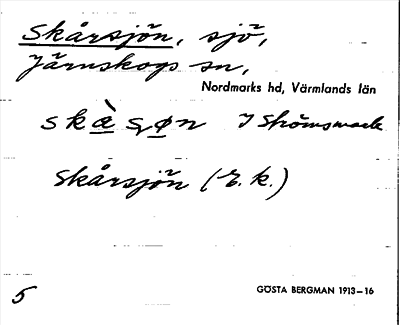 Skårsjön, sjö,
Järnskogs sn,
Nordmarks hd, Värmlands län
Skårsjön (E. k.)
5
GÖSTA BERGMAN 1913–16